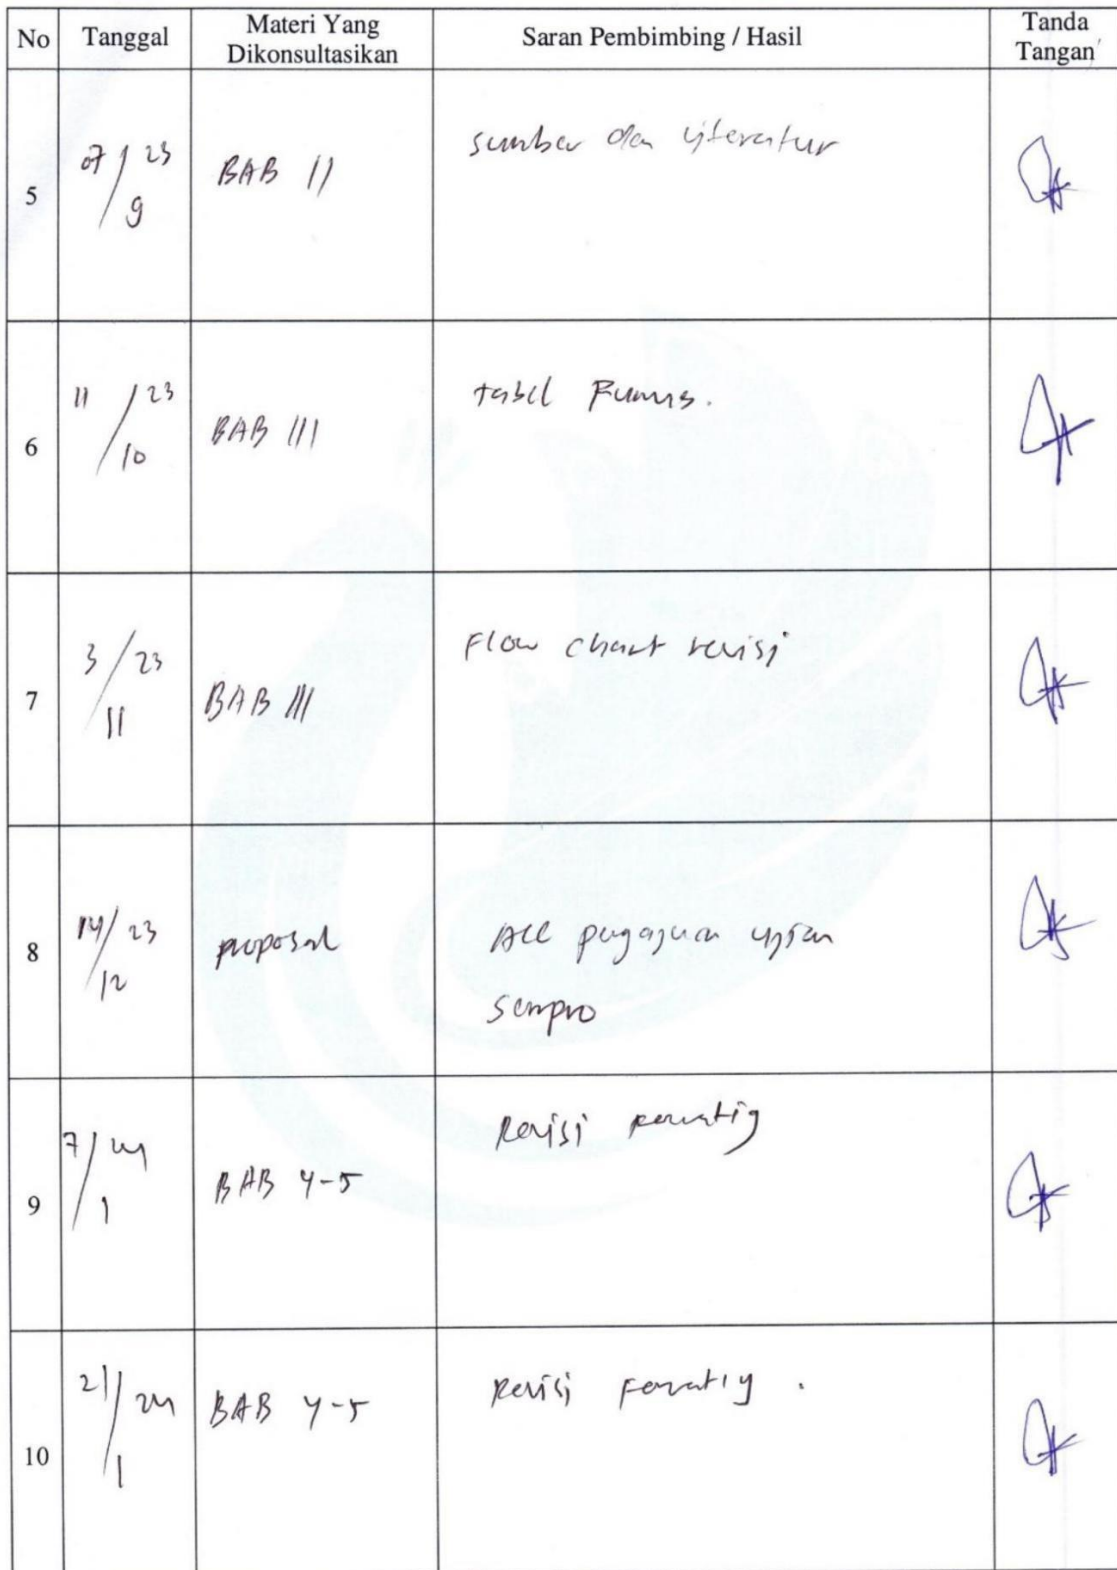 No Tanggal Materi Yang Dikonsultasikan Saran Pembimbing / Hasil Tanda Tangan
5 07/9 23 BAB II sumber dan literatur
6 11/10 23 BAB III tabel Rumus.
7 3/11 23 BAB III Flow chart revisi
8 14/12 23 proposal Acc pengajuan ujian
sempro
9 7/1 24 BAB 4-5 Revisi
10 21/1 24 BAB 4-5 Revisi